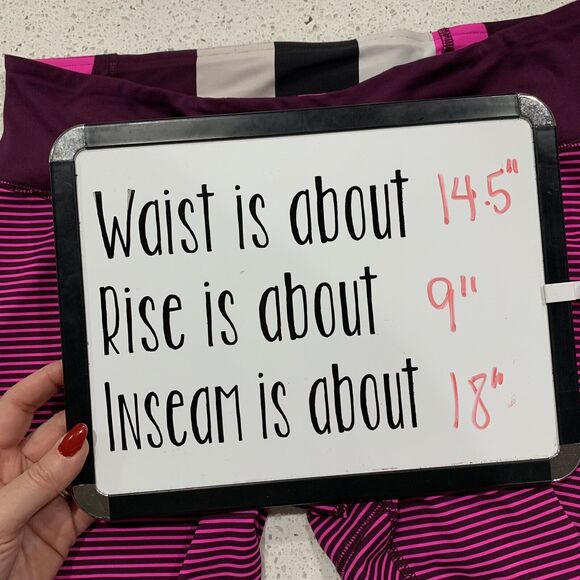 Waist is about 14.5"
Rise is about 9"
Inseam is about 18"